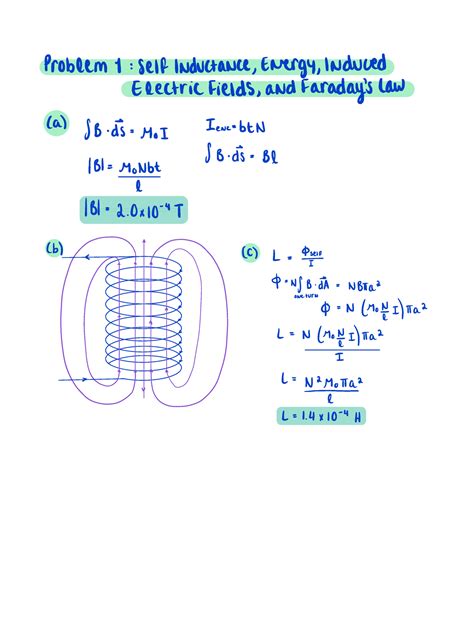 Problem 1: Self Inductance, Energy, Induced
Electric Fields, and Faraday's Law
(a) ∫B·ds⃗ = μ₀I
I_enc = btN
|B| = μ₀Nbt / l
∫B·ds⃗ = Bl
|B| = 2.0×10⁻⁴ T
(b)
(c) L = Φ_self / I
Φ = N∫B·dA⃗ = NBπa²
one turn
Φ = N (μ₀ N/l I) πa²
L = N (μ₀ N/l I) πa² / I
L = N² μ₀ πa² / l
L = 1.4 × 10⁻⁴ H